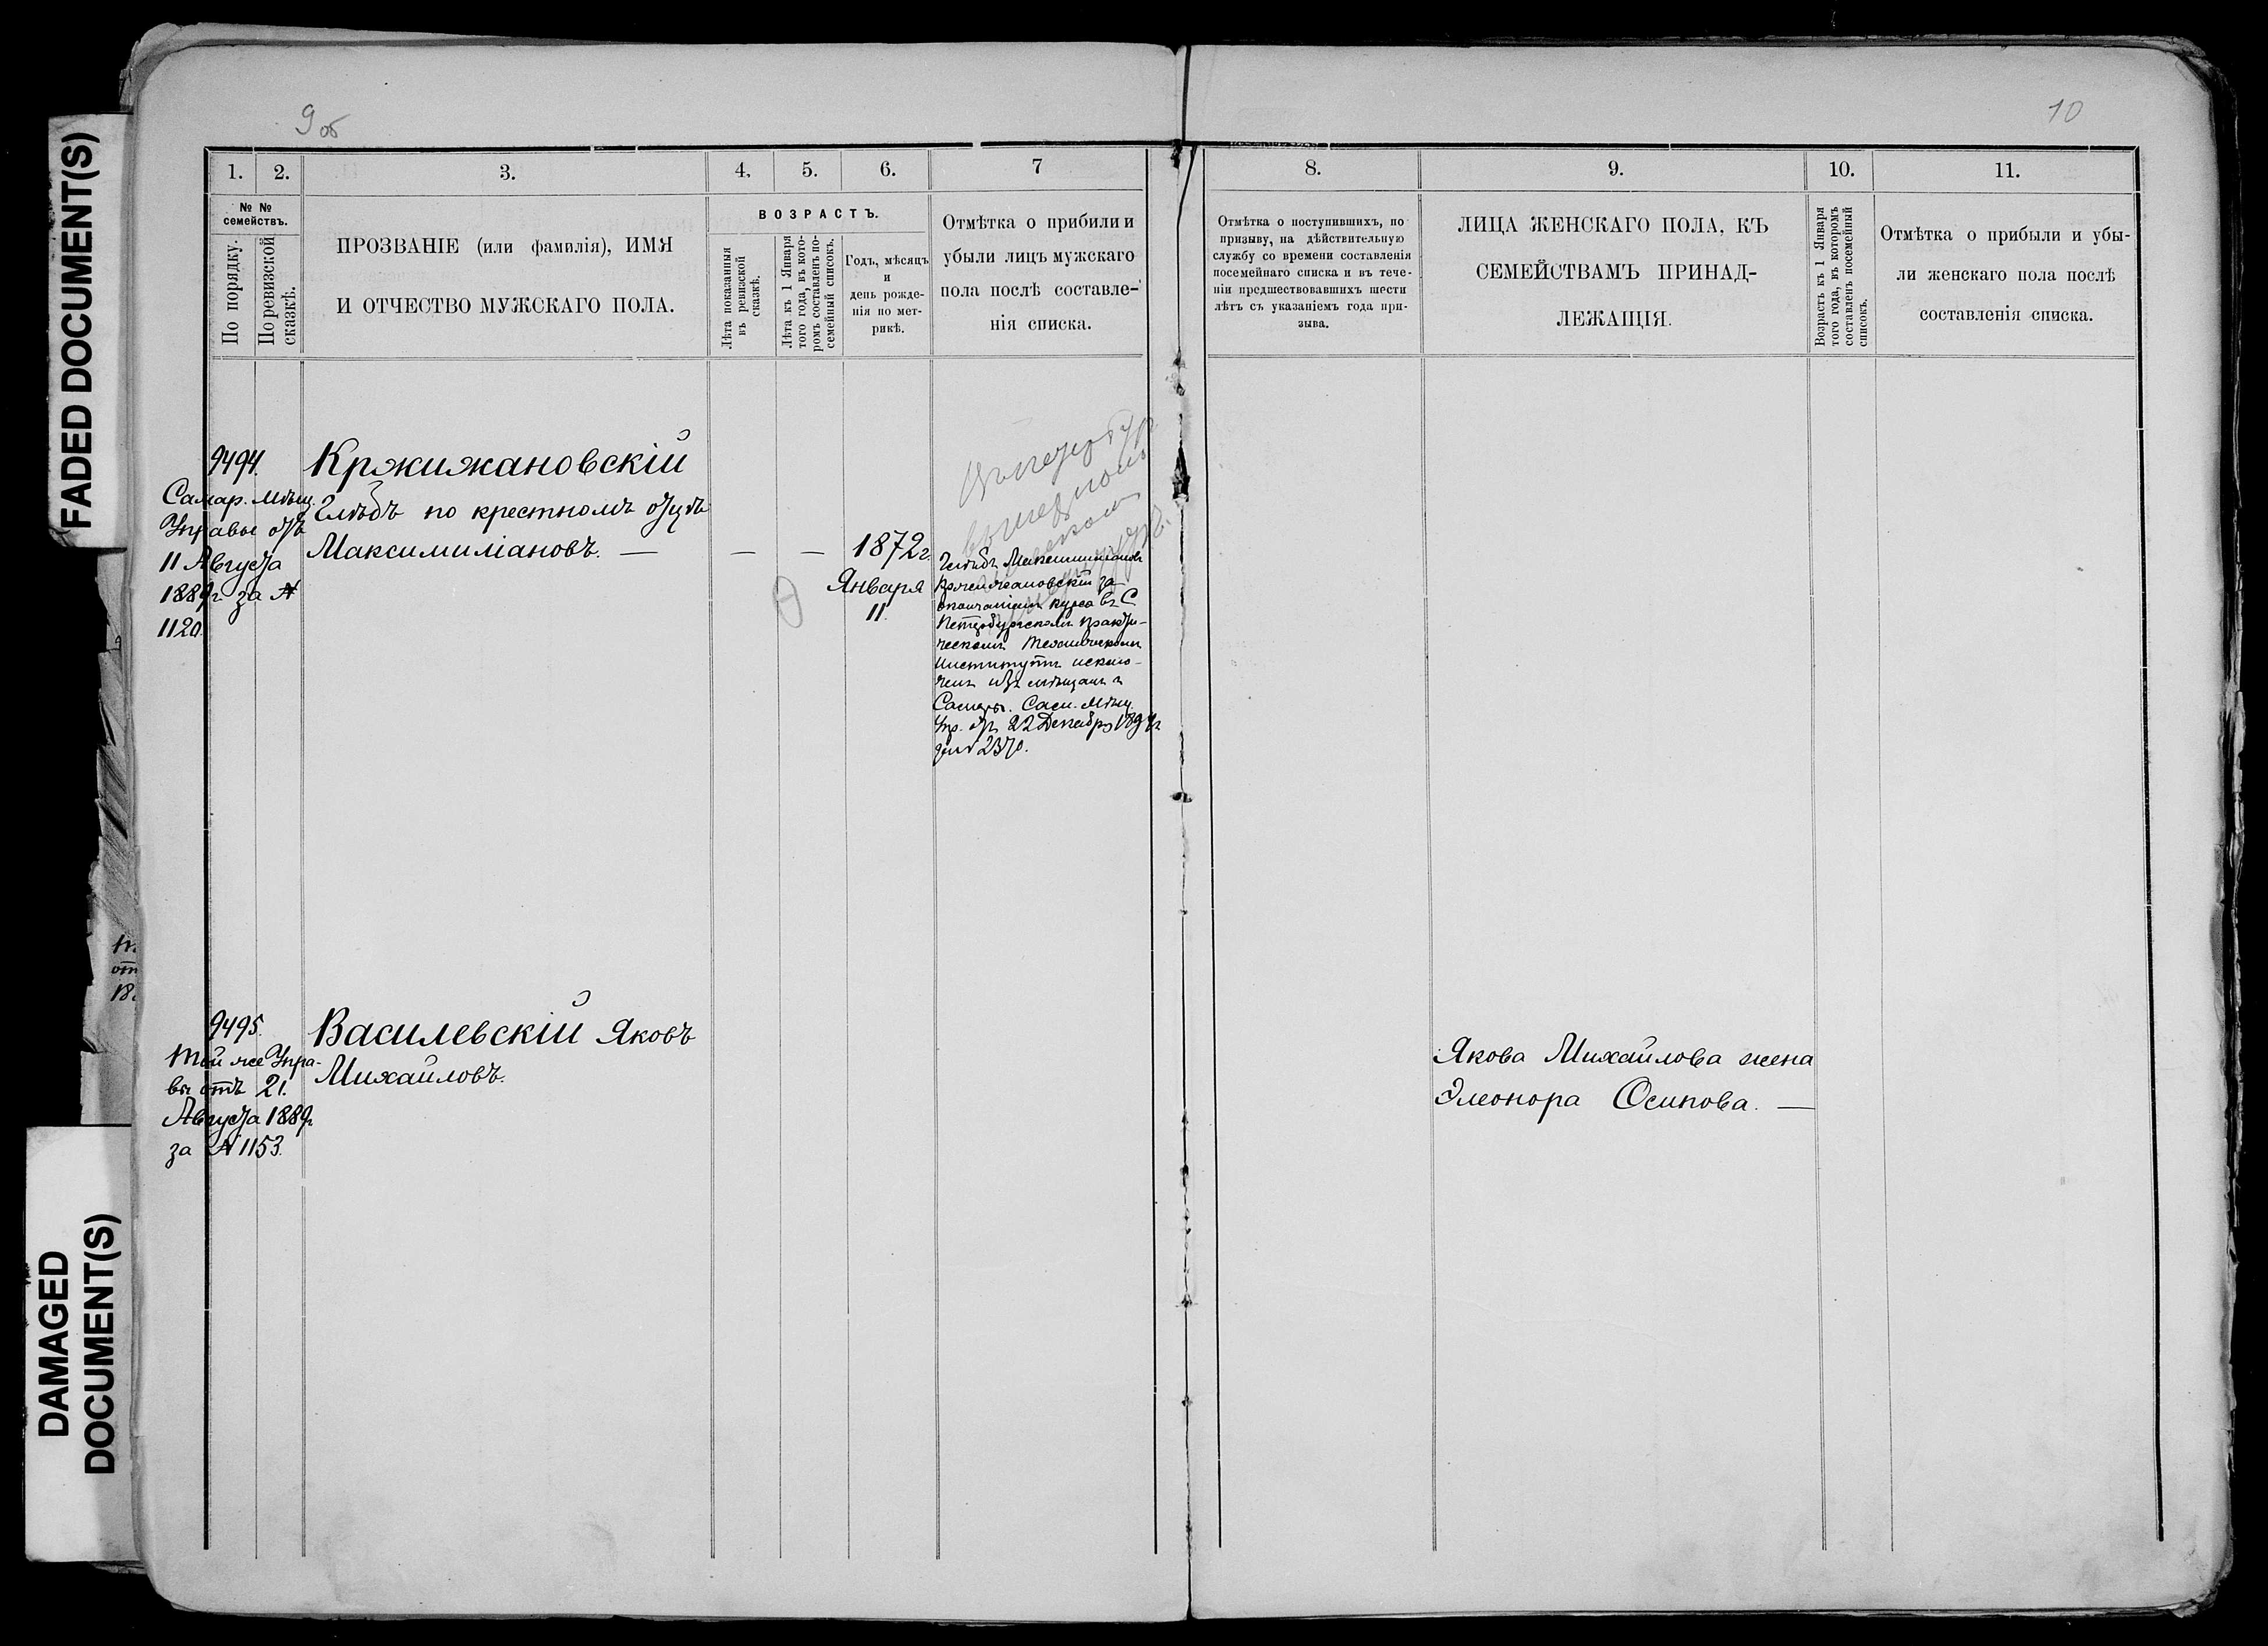 FADED DOCUMENT(S)
DAMAGED
DOCUMENT(S)
9 об
1.
2.
3.
4.
5.
6.
7
№ №
семействъ.
По порядку.
По ревизской
сказкѣ.
ПРОЗВАНІЕ (или фамилія), ИМЯ
И ОТЧЕСТВО МУЖСКАГО ПОЛА.
ВОЗРАСТЪ.
Лѣта показанныя
въ ревизской
сказкѣ.
Лѣта къ 1 Января
того года, въ кото-
ромъ составленъ по-
семейный списокъ.
Годъ, мѣсяцъ
и
день рожде-
нія по мет-
рикѣ.
Отмѣтка о прибыли и
убыли лицъ мужскаго
пола послѣ составле-
нія списка.
9494.
Самар. Мѣщ.
Управы отъ
11 Августа
1889г за №
1120.
Кржижановскій
Глѣбъ по крестномъ отцѣ
Максимиліановъ. —
—
—
1872г.
Января
11.
Глѣбъ Максимиліановъ
Кржижановскій за
окончаніемъ курса въ С
Петербургскомъ практи-
ческомъ Техническомъ
Институтѣ исклю-
ченъ изъ мѣщанъ г
Самары. Сам. Мѣщ.
Упр. отъ 22 Декабря 1894г
за № 2370.
9495.
Той же Упра-
вы отъ 21.
Августа 1889г
за № 1153.
Василевскій Яковъ
Михайловъ.
10
8.
9.
10.
11.
Отмѣтка о поступившихъ, по
призыву, на дѣйствительную
службу со времени составленія
посемейнаго списка и въ тече-
ніи предшествовавшихъ шести
лѣтъ съ указаніемъ года при-
зыва.
ЛИЦА ЖЕНСКАГО ПОЛА, КЪ
СЕМЕЙСТВАМЪ ПРИНАД-
ЛЕЖАЩІЯ.
Возрастъ къ 1 Января
того года, въ которомъ
составленъ посемейный
списокъ.
Отмѣтка о прибыли и убы-
ли женскаго пола послѣ
составленія списка.
Якова Михайлова жена
Элеонора Осипова. —